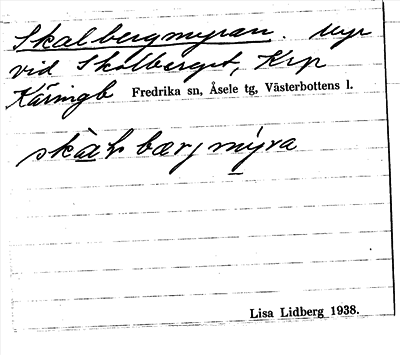 Skalbergmyran. Myr
vid Skalberget, Krp
Käringb Fredrika sn, Åsele tg, Västerbottens l.
bærj mýra
Lisa Lidberg 1938.